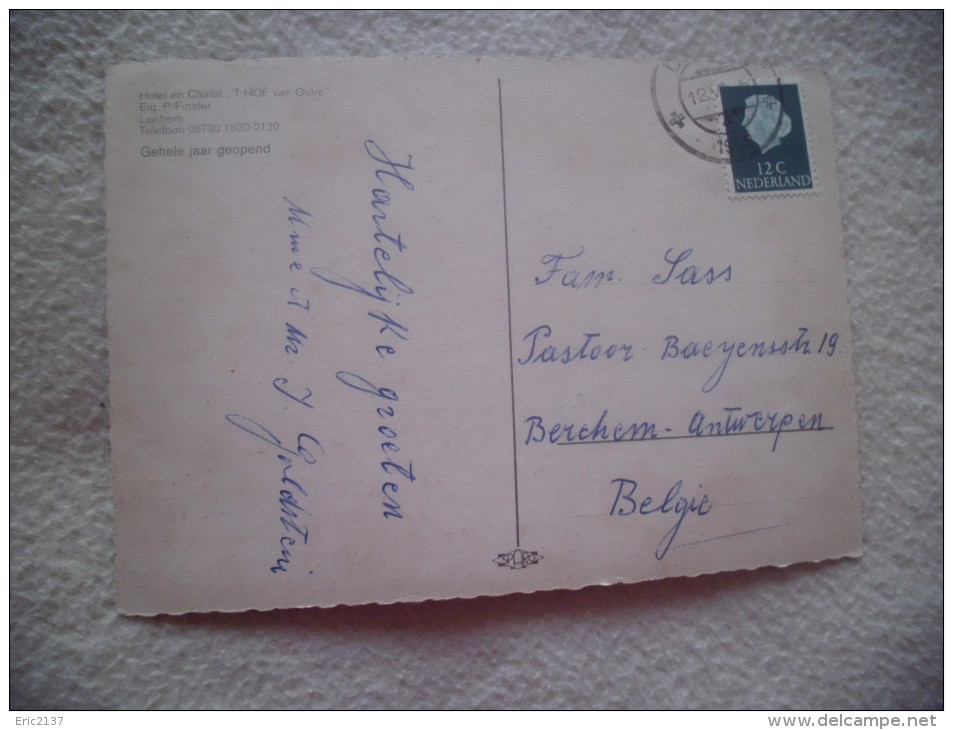 Hotel en Chalet „'T HOF van Gelre"
Eig. P. Finster
Lochem
Telefoon 05730.1620-2120
Gehele jaar geopend
Hartelijke groeten
Mme et Mr. J. Goldstein
12
12 C
NEDERLAND
Fam. Sass
Pastoor Baeyensstr. 19.
Berchem - Antwerpen
Belgie
Eric2137
www.delcampe.net